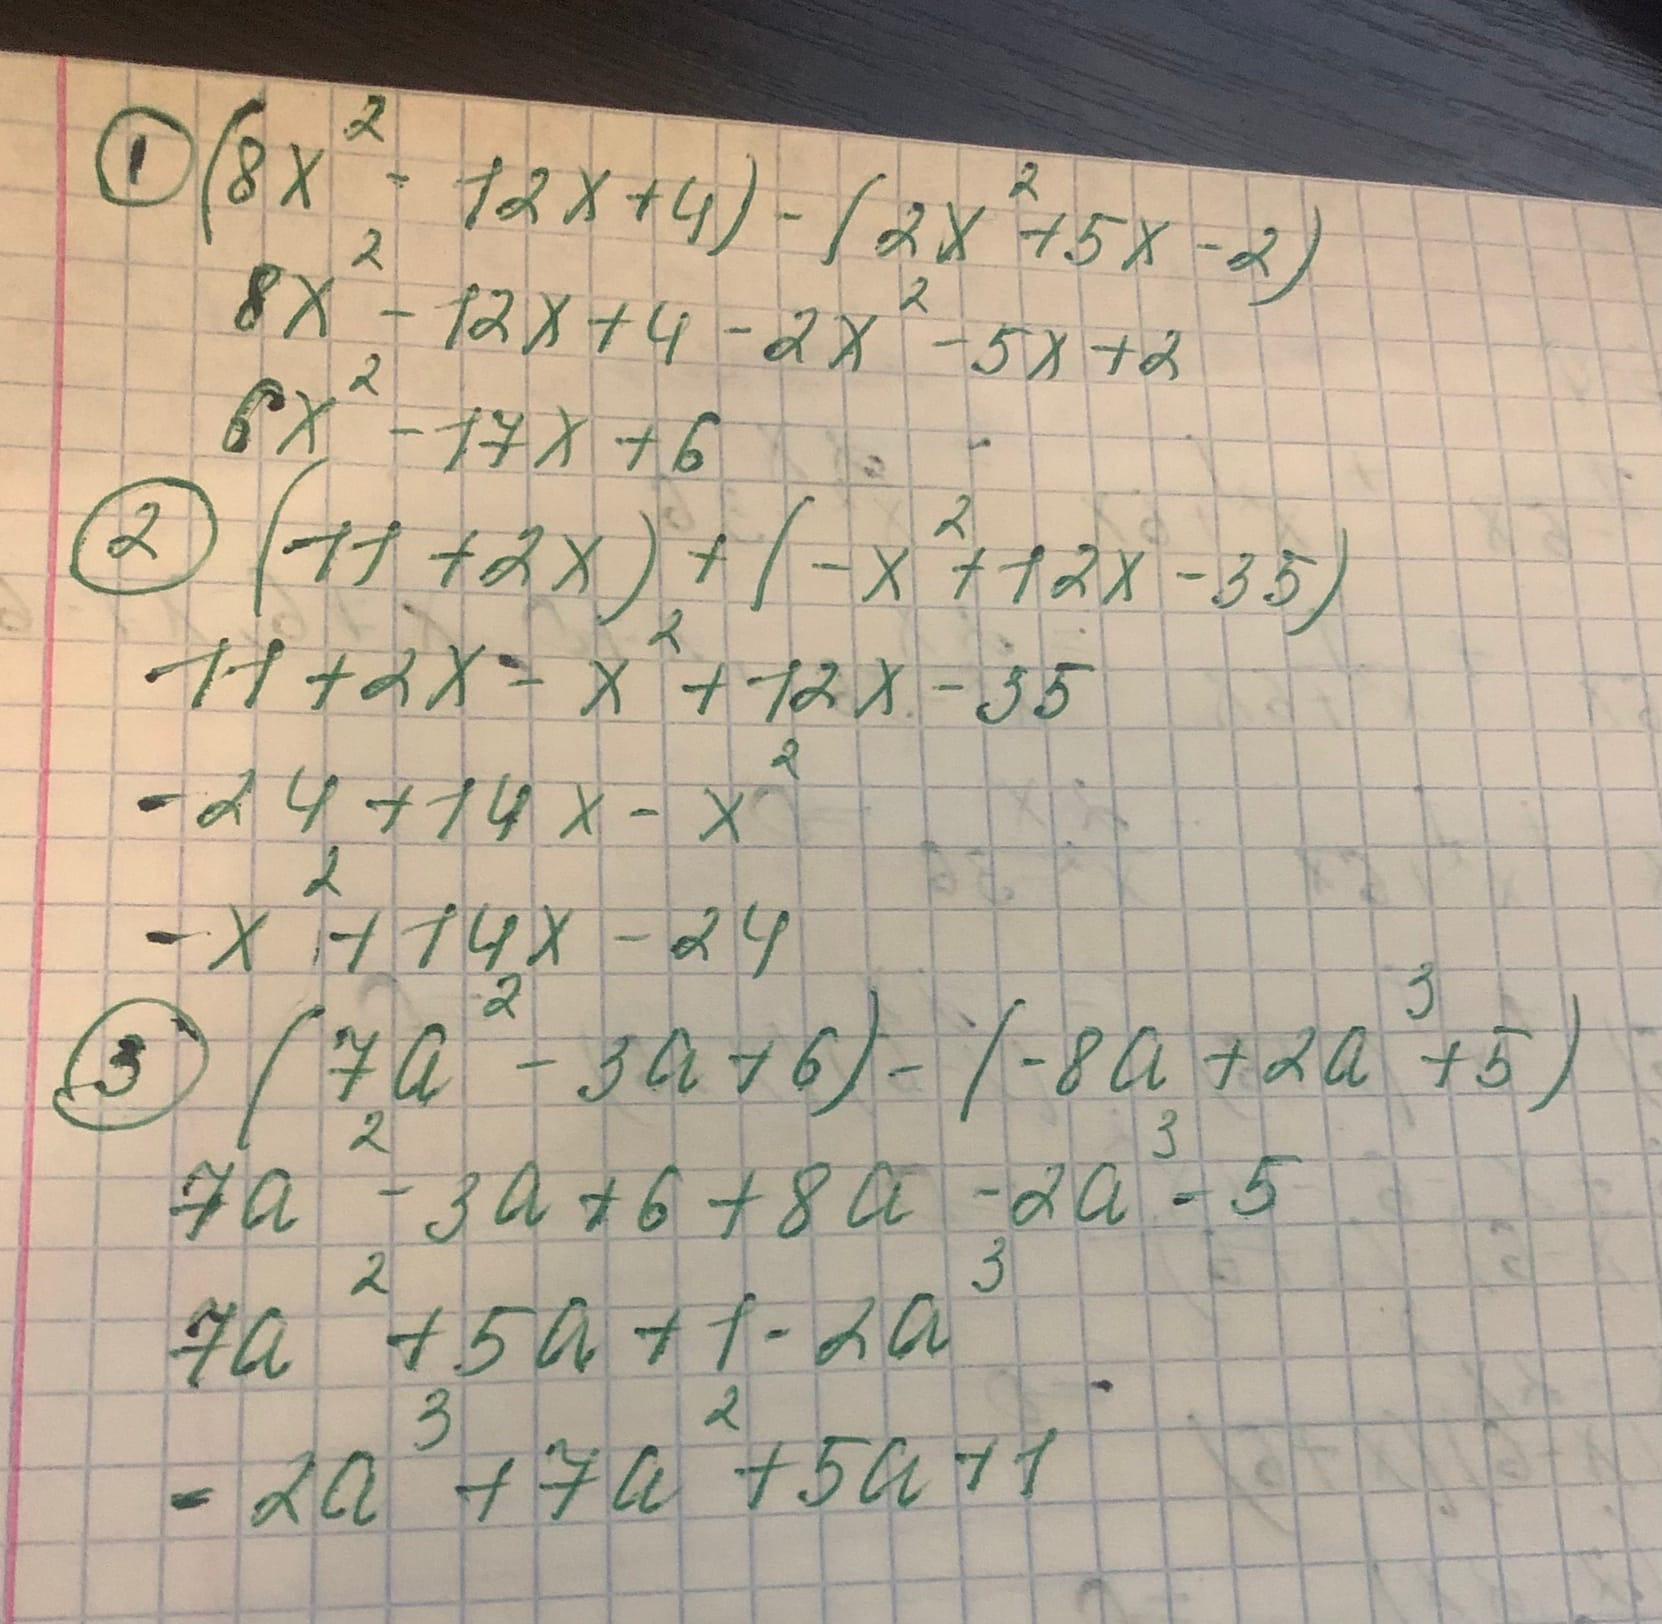 ① (8x² - 12x + 4) - (2x² + 5x - 2)
8x² - 12x + 4 - 2x² - 5x + 2
6x² - 17x + 6
② (-11 + 2x) + (-x² + 12x - 35)
-11 + 2x - x² + 12x - 35
-24 + 14x - x²
-x² + 14x - 24
③ (7a² - 3a + 6) - (-8a + 2a³ + 5)
7a² - 3a + 6 + 8a - 2a³ - 5
7a² + 5a + 1 - 2a³
- 2a³ + 7a² + 5a + 1